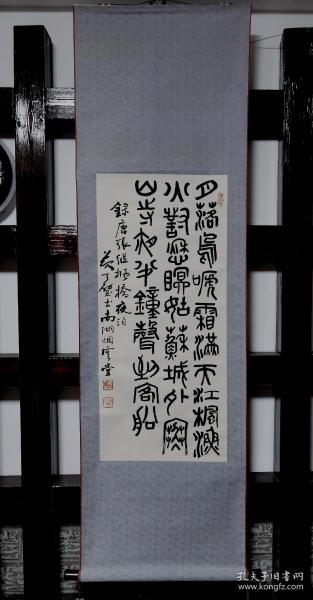 月落烏啼霜滿天江楓漁
火對愁眠姑蘇城外寒
山寺夜半鐘聲到客船
録唐張継楓橋夜泊
書南湖烟雲堂
孔夫子旧书网
www.kongfz.com